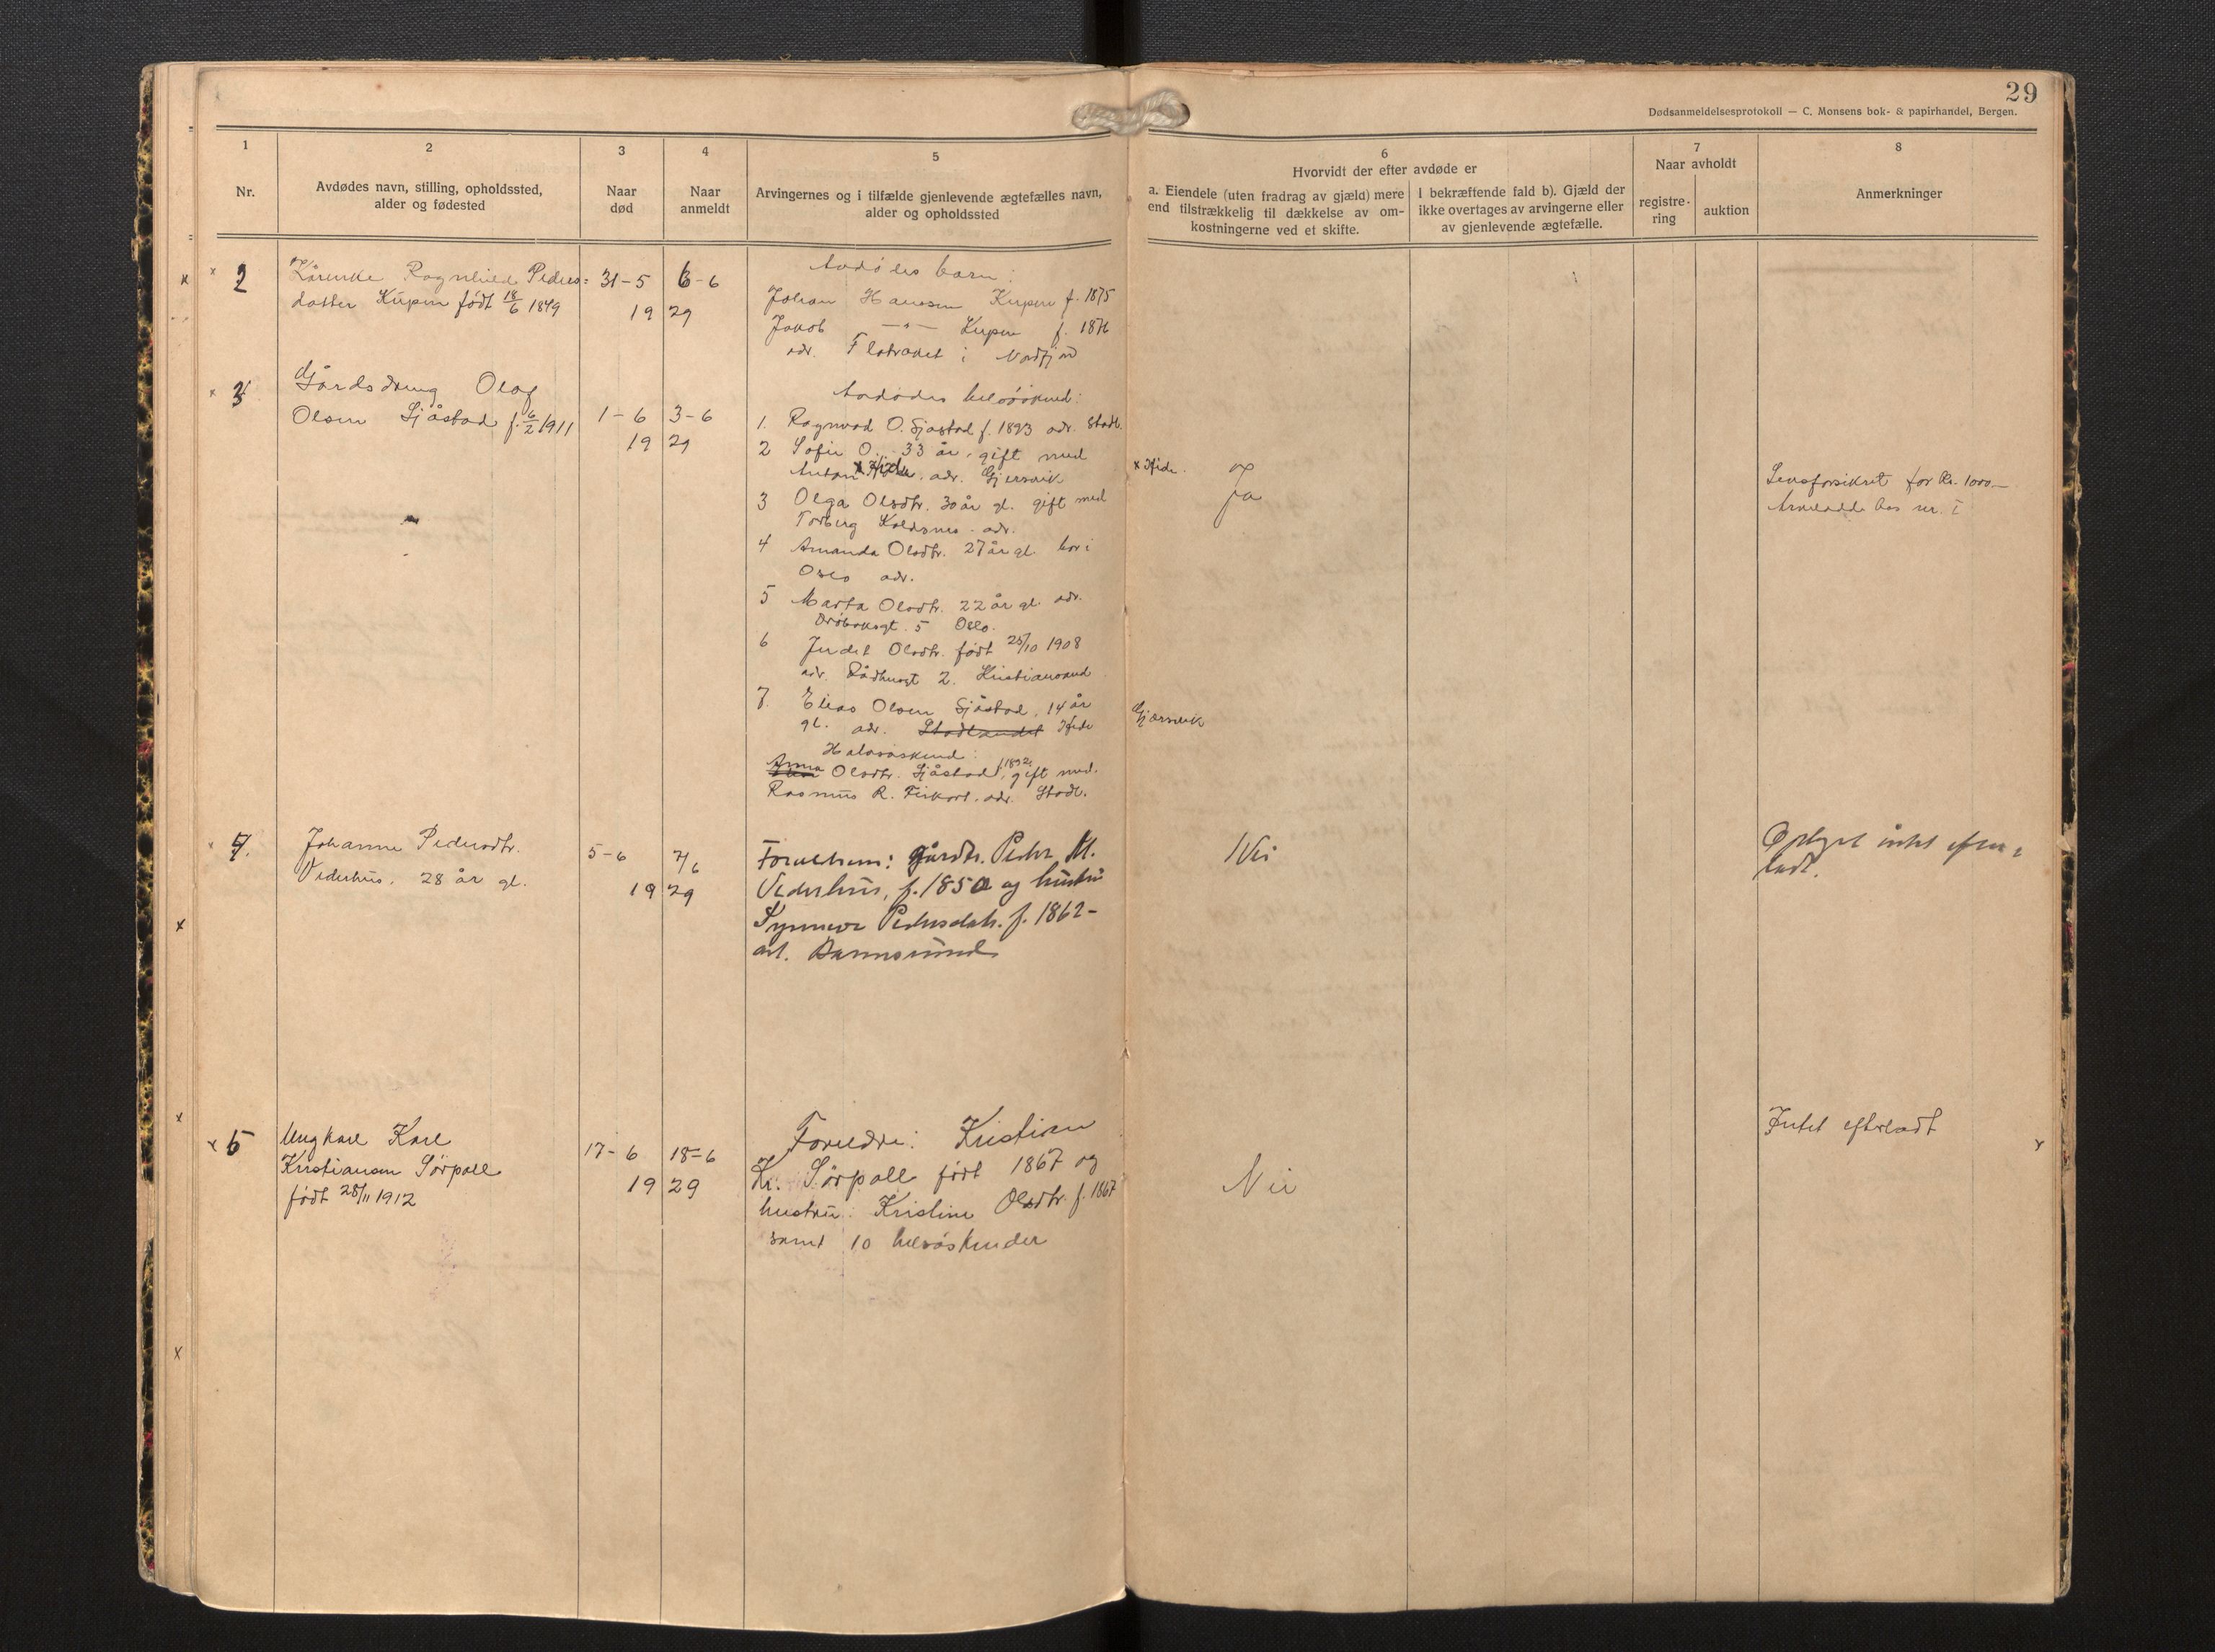 29
Dødsanmeldelsesprotokoll — C. Monsens bok- & papirhandel, Bergen.
1
2
3
4
5
6
7
8
Nr.
Avdødes navn, stilling, opholdssted,
alder og fødested
Naar
død
Naar
anmeldt
Arvingernes og i tilfælde gjenlevende ægtefælles navn,
alder og opholdssted
Hvorvidt der efter avdøde er
a. Eiendele (uten fradrag av gjæld) mere
end tilstrækkelig til dækkelse av om-
kostningerne ved et skifte.
I bekræftende fald b). Gjæld der
ikke overtages av arvingerne eller
av gjenlevende ægtefælle.
Naar avholdt
registre-
ring
auktion
Anmerkninger
2
Ragnhild Peders=
datter Kupen født 18/6 1849
31-5
6-6
19 29
Avdødes barn:
Johan Hansen Kupen f. 1875
Jakob —"— Kupen f. 1876
adr. Flatraket i Nordfjord
3
Gårdsdreng Olaf
Olsen Sjåstad f. 6/2 1911
1-6
3-6
19 29
Avdødes helsøskend:
1. Ragnvad O. Sjåstad f. 1893 adr. Stadl.
2 Sofie O. 33 år, gift med
Anton Hide, adr. Gjersvik
x Hide.
3 Olga Olsdtr. 30 år gl. gift med
Torberg Koldsnes adr.
4 Amanda Olsdtr. 27 år gl. bor i
Oslo adr.
5 Marta Olsdtr. 22 år gl. adr.
Drøbaksgt. 5 Oslo.
6 Olsdtr. født 25/10 1908
adr. Rådhusgt 2. Kristiansund
7. Elias Olsen Sjåstad, 14 år
gl. adr. Stadlandet Hide
Gjærsvik
Halvsøskend:
Anna Olsdtr. Sjåstad f 1892, gift med.
Rasmus R. adr. Stadl.
Ja
Livsforsikret for kr. 1000.—
Arveladde hos nr. 1
4.
Johanne Pedersdtr.
Vederhus. 28 år gl.
5-6
7/6
19 29
Forældrene: gårdbr. Peder M.
Vederhus, f. 1850 og hustru
Synneve Pedersdatr. f. 1862-
adr.
Nei
Oplyst intet efter=
ladt.
5
Ungkarl Karl
Kristiansen Sørpoll
født 28/11 1912
17-6
18-6
19 29
Foreldre: Kristian
Kr. Sørpoll født 1867 og
hustru: Kristine Olsdtr. f. 1867
samt 10 helsøskender
Nei
Intet efterladt